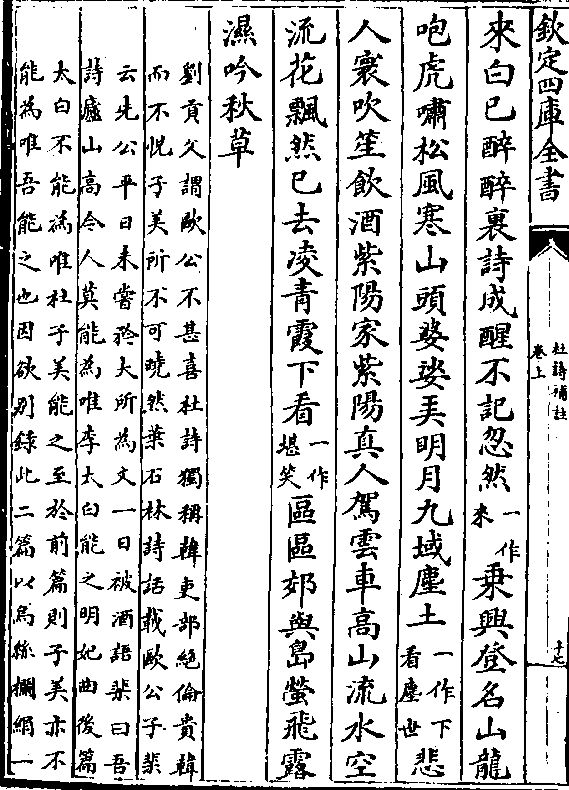 欽定四庫全書
杜詩補註
卷上
十七
來白已醉醉裏詩成醒不記忽然一作來乘興登名山龍
咆虎嘯松風寒山頭婆娑弄明月九域塵土一作下看塵世悲
人寰吹笙飲酒紫陽家紫陽真人駕雲車高山流水空
流花飄然已去凌青霞下看一作堪笑區區郊與島螢飛露
濕吟秋草
劉貢父謂歐公不甚喜杜詩獨稱韓吏部絶倫貴韓
而不悅子美所不可曉然葉石林詩話載歐公子棐
云先公平日未嘗矜大所為文一日被酒語棐曰吾
詩廬山高今人莫能為唯李太白能之明妃曲後篇
太白不能為唯杜子美能之至於前篇則子美亦不
能為唯吾能之也因欲别錄此二篇以烏絲欄絹一